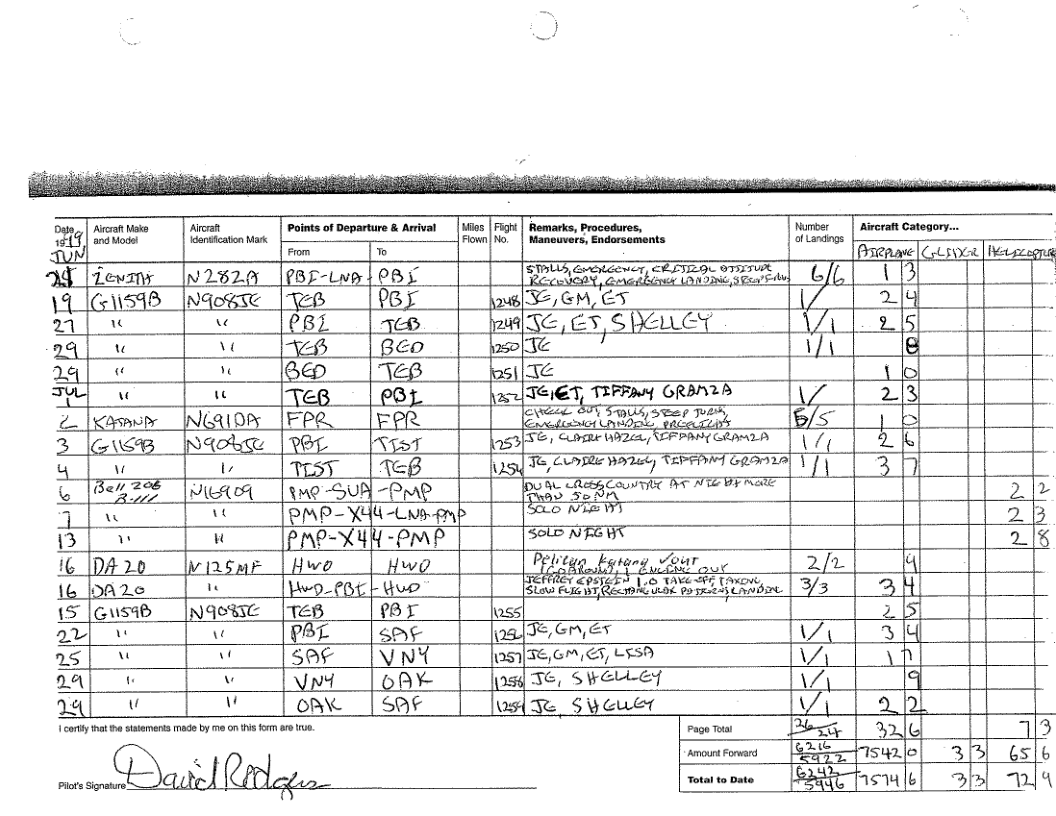 Date Aircraft Make and Model Aircraft Identification Mark Points of Departure & Arrival Miles Flown Flight No. Remarks, Procedures, Maneuvers, Endorsements Number of Landings Aircraft Category...
1999 From To AIRPLANE GLIDER HELICOPTER
JUN
ZENITH N282A PBI-LNA-PBI STALLS, EMERGENCY, CRITICAL ATTITUDE RECOVERY, EMERGENCY LANDING, 6/6 1 3
19 G1159B N908JE TEB PBI 1248 JE, GM, ET 1/ 2 4
27 " " PBI TEB 1249 JE, ET, SHELLEY 1/1 2 5
29 " " TEB BED 1250 JE 1/1 8
29 " " BED TEB 1251 JE 1 0
JUL
1 " " TEB PBI 1252 JE, ET, TIFFANY GRAMZA 1/ 2 3
2 KATANA N691DA FPR FPR CHECK OUT, STALLS, STEEP TURN, EMERGENCY LANDING, 5/5 1 0
3 G1159B N908JE PBI TIST 1253 JE, CLAIRE HAZEL, TIFFANY GRAMZA 1/1 2 6
4 " " TIST TEB 1254 JE, CLAIRE HAZEL, TIFFANY GRAMZA 1/1 3 7
6 Bell 206 B-III N16909 PMP-SUA-PMP DUAL CROSS COUNTRY AT NIGHT MORE THAN 50 NM 2 2
7 " " PMP-X44-LNA-PMP SOLO NIGHT 2 3
13 " " PMP-X44-PMP SOLO NIGHT 2 8
16 DA20 N125MF HWO HWO Katana (GO AROUND), 1 ENGINE OUT 2/2 9
16 DA20 " HWO-PBI-HWO JEFFREY EPSTEIN 1.0 TAKE OFF, TAXING, SLOW FLIGHT, RECTANGULAR PATTERNS, LANDING 3/3 3 4
15 G1159B N908JE TEB PBI 1255 2 5
22 " " PBI SAF 1256 JE, GM, ET 1/1 3 4
25 " " SAF VNY 1257 JE, GM, ET, LISA 1/1 1 7
29 " " VNY OAK 1258 JE, SHELLEY 1/1 9
29 " " OAK SAF 1259 JE, SHELLEY 1/1 2 2
I certify that the statements made by me on this form are true. Page Total 26/24 32 6 7 3
Amount Forward 6216/5922 7542 0 3 3 65 6
Pilot's Signature David Rodgers Total to Date 6242/5946 7574 6 3 3 72 9